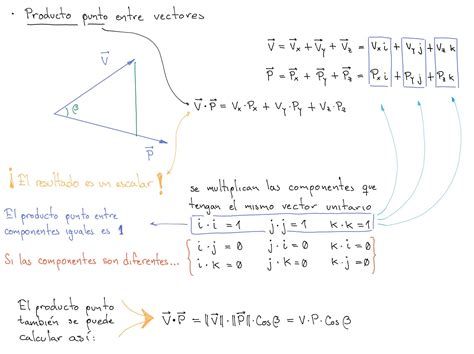 • Producto punto entre vectores
V⃗ = V⃗x + V⃗y + V⃗z = Vx i + Vy j + Vz k
P⃗ = P⃗x + P⃗y + P⃗z = Px i + Py j + Pz k
V⃗
β
P⃗
V⃗·P⃗ = Vx·Px + Vy·Py + Vz·Pz
¡El resultado es un escalar!
se multiplican las componentes que
tengan el mismo vector unitario
El producto punto entre
componentes iguales es 1
i·i = 1 j·j = 1 k·k = 1
Si las componentes son diferentes...
i·j = 0 j·i = 0 k·i = 0
i·k = 0 j·k = 0 k·j = 0
El producto punto
también se puede
calcular así:
V⃗·P⃗ = ‖V⃗‖·‖P⃗‖·Cos β = V·P·Cos β